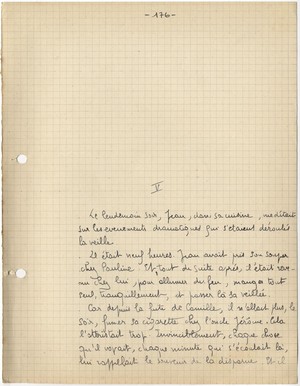 - 176 -
V
Le lendemain soir, Jean, dans sa cuisine, méditait
sur les evenements dramatiques qui s'etaient deroulés
la veille.
Il était neuf heures. Jean avait pris son souper
chez Pauline. Et, tout de suite après, il était reve-
nu chez lui, pour allumer du feu, manger tout
seul, tranquillement, et passer là sa veillée.
Car depuis la fuite de Camille, il n'allait plus, le
soir, fumer sa cigarette chez l'oncle Jérôme. Cela
l'attristait trop. Invinciblement, chaque chose
qu'il voyait, chaque minute qui s'écoulait là,
lui rappellait le souvenir de la disparue. Et il